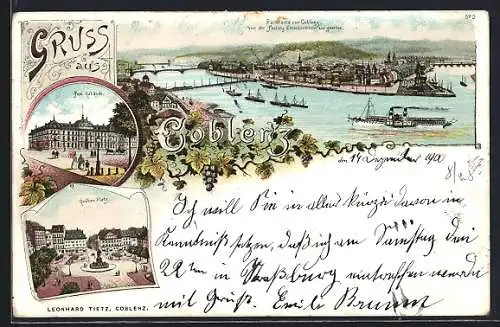 Gruss
aus
Coblenz
Panorama von Coblenz
von der Festung Ehrenbreitstein aus gesehen.
Post Gebäude.
Goeben Platz.
den 19 Dezember 190
Ich will Sie in aller Kürze davon in
Kenntniß setzen, daß ich am Samstag den
22ten in Straßburg eintreffen werde
mit Gruß. Emil
LEONHARD TIETZ, COBLENZ.